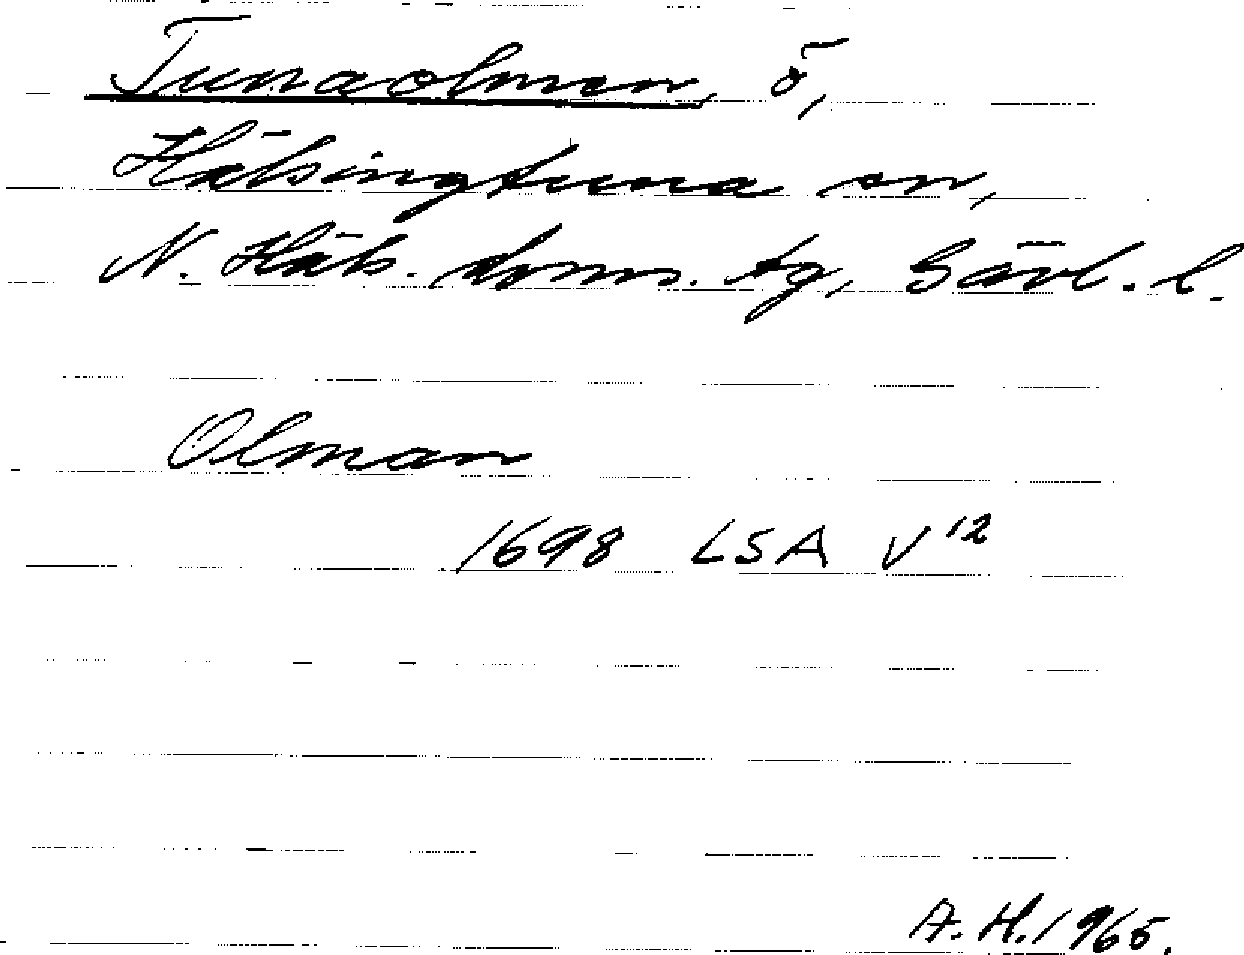 Tunaolmen, ö,
Hälsingtuna sn,
N. Häls. doms. tg, Gävl. l.
Olman
1698 LSA V 12
A. H. 1965.